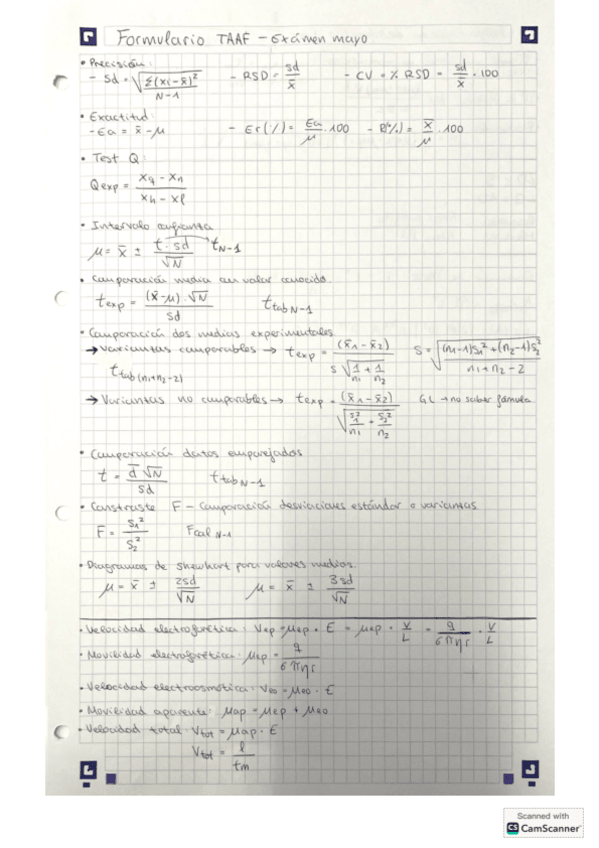 Formulario TAAF - Exámen mayo
• Precisión:
- Sd = √(Σ(xi - x̄)² / N-1) - RSD = sd / x̄ - CV = % RSD = sd / x̄ · 100
• Exactitud:
- Ea = x̄ - μ - Er(%) = Ea / μ · 100 - R(%) = x̄ / μ · 100
• Test Q:
Qexp = xq - xn / xh - xl
• Intervalo confianza
μ = x̄ ± t · sd / √N tN-1
• Comparación media con valor conocido.
texp = (x̄ - μ) · √N / sd ttab N-1
• Comparación dos medias experimentales
→ Variantas comparables → texp = (x̄1 - x̄2) / s √(1/n1 + 1/n2) S = √((n1-1)S1² + (n2-1)S2² / n1 + n2 - 2)
ttab (n1+n2-2)
→ Variantas no comparables → texp = (x̄1 - x̄2) / √(S1²/n1 + S2²/n2) GL → no saber fórmula
• Comparación datos emparejados
t = d̄ √N / sd ttab N-1
• Constraste F - Comparación desviaciones estándar o variantas
F = S1² / S2² Fcal N-1
• Diagramas de Shewhart para valores medios.
μ = x̄ ± 2sd / √N μ = x̄ ± 3sd / √N
• Velocidad electroforética: Vep = μep · E = μep · V / L = q / 6πηr · V / L
• Movilidad electroforética: μep = q / 6πηr
• Velocidad electroosmótica: Veo = μeo · E
• Movilidad aparente: μap = μep + μeo
• Velocidad total: Vtot = μap · E
Vtot = l / tm
Scanned with
CS CamScanner